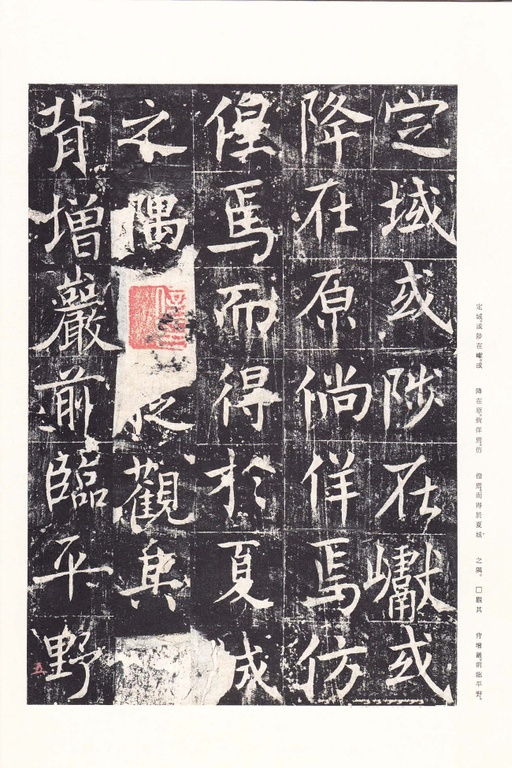 定域或陟在巘或
降在原倘佯焉仿
偟焉而得於夏成
之隅觀其
背增巖前臨平野
五
定域。或陟在巘。或
降在原。倘佯焉。仿
偟焉。而得於夏城
之隅。□觀其
背增巖。前臨平野。